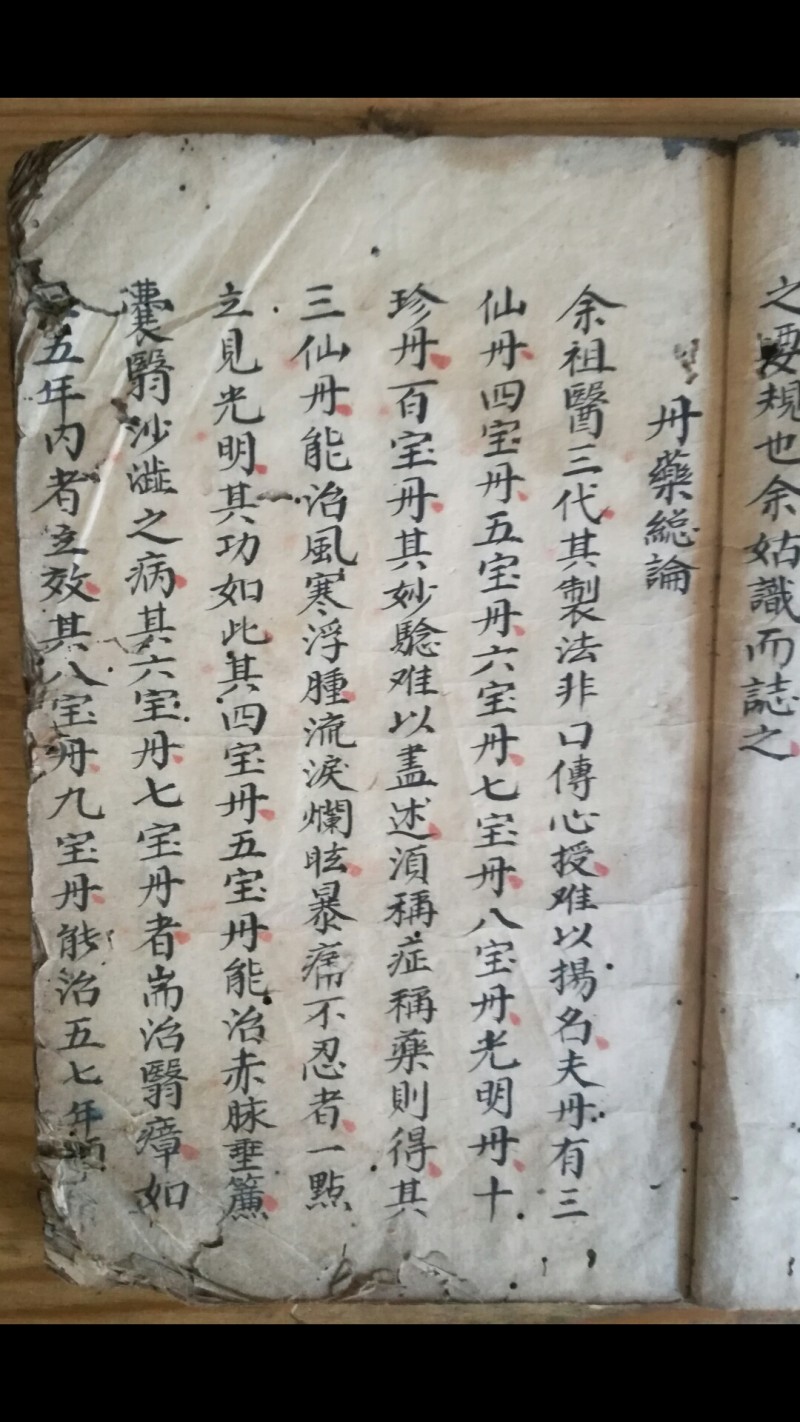 之腰規也余姑識而誌之
丹藥総論
余祖醫三代其製法非口傳心授难以揚名夫丹有三
仙丹四宝丹五宝丹六宝丹七宝丹八宝丹光明丹十
珍丹百宝丹其妙騐难以盡述湏稱症稱藥則得其
三仙丹能治風寒浮腫流淚爛眩暴痛不忍者一點
立見光明其功如此其四宝丹五宝丹能治赤脉垂簾
囊翳沙澁之病其六宝丹七宝丹者耑治翳瘴如
五年内者立效其八宝丹九宝丹能治五七年